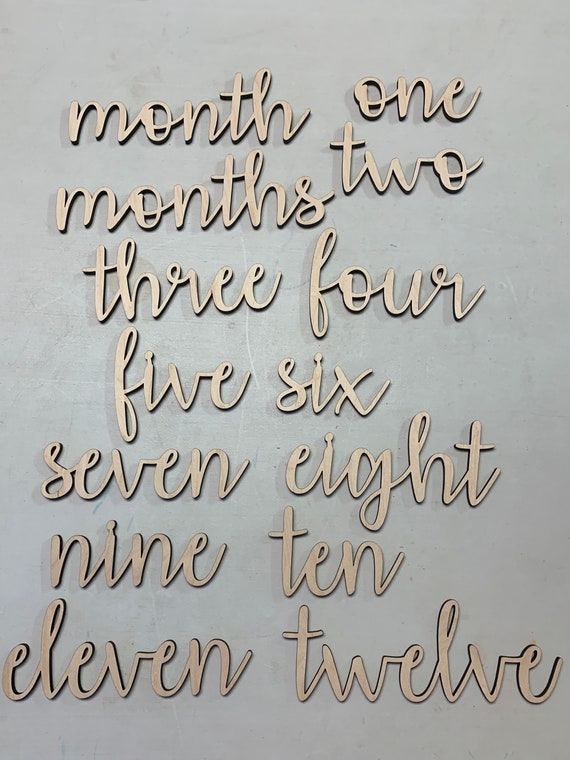 month one
months two
three four
five six
seven eight
nine ten
eleven twelve